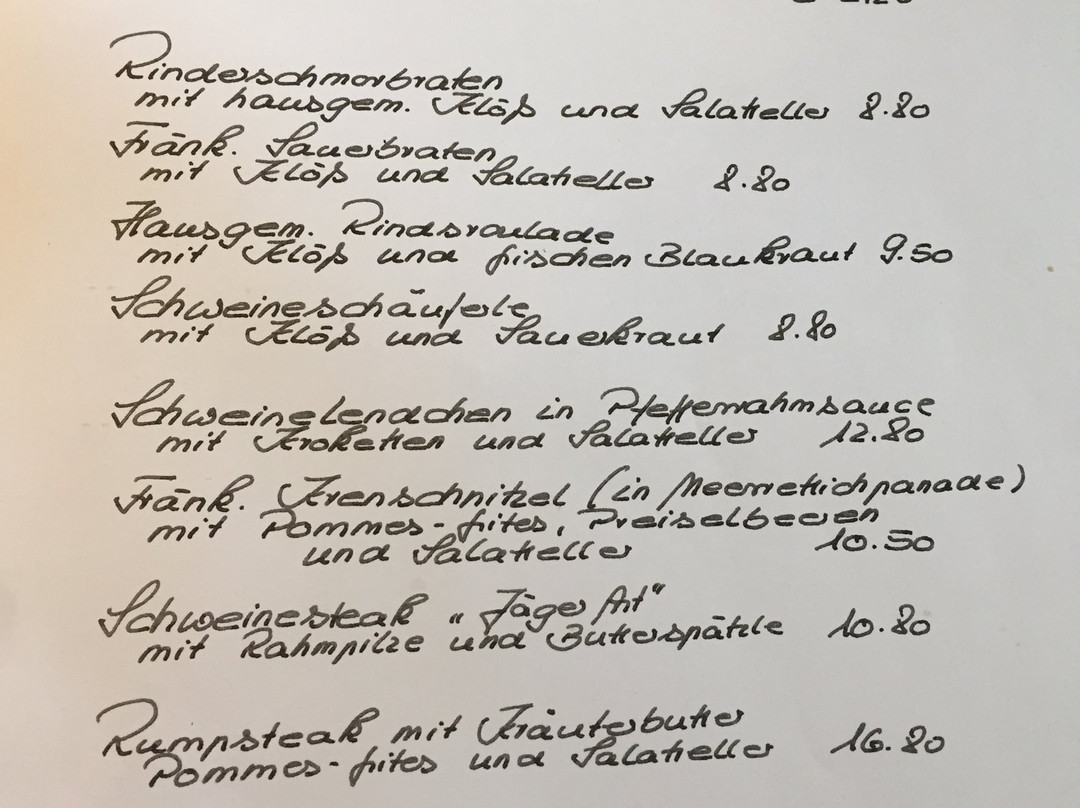 Rinderschmorbraten
mit hausgem. Klöß und Salatteller 8.80
Fränk. Sauerbraten
mit Klöß und Salatteller 8.80
Hausgem. Rindsroulade
mit Klöß und frischen Blaukraut 9.50
Schweineschäuferle
mit Klöß und Sauerkraut 8.80
Schweinelendchen in Pfefferrahmsauce
mit Kroketten und Salatteller 12.80
Fränk. Krenschnitzel (in Meerrettichpanade)
mit Pommes-frites, Preiselbeeren
und Salatteller 10.50
Schweinesteak "Jäger Art"
mit Rahmpilze und Butterspätzle 10.80
Rumpsteak mit Kräuterbutter
Pommes-frites und Salatteller 16.80